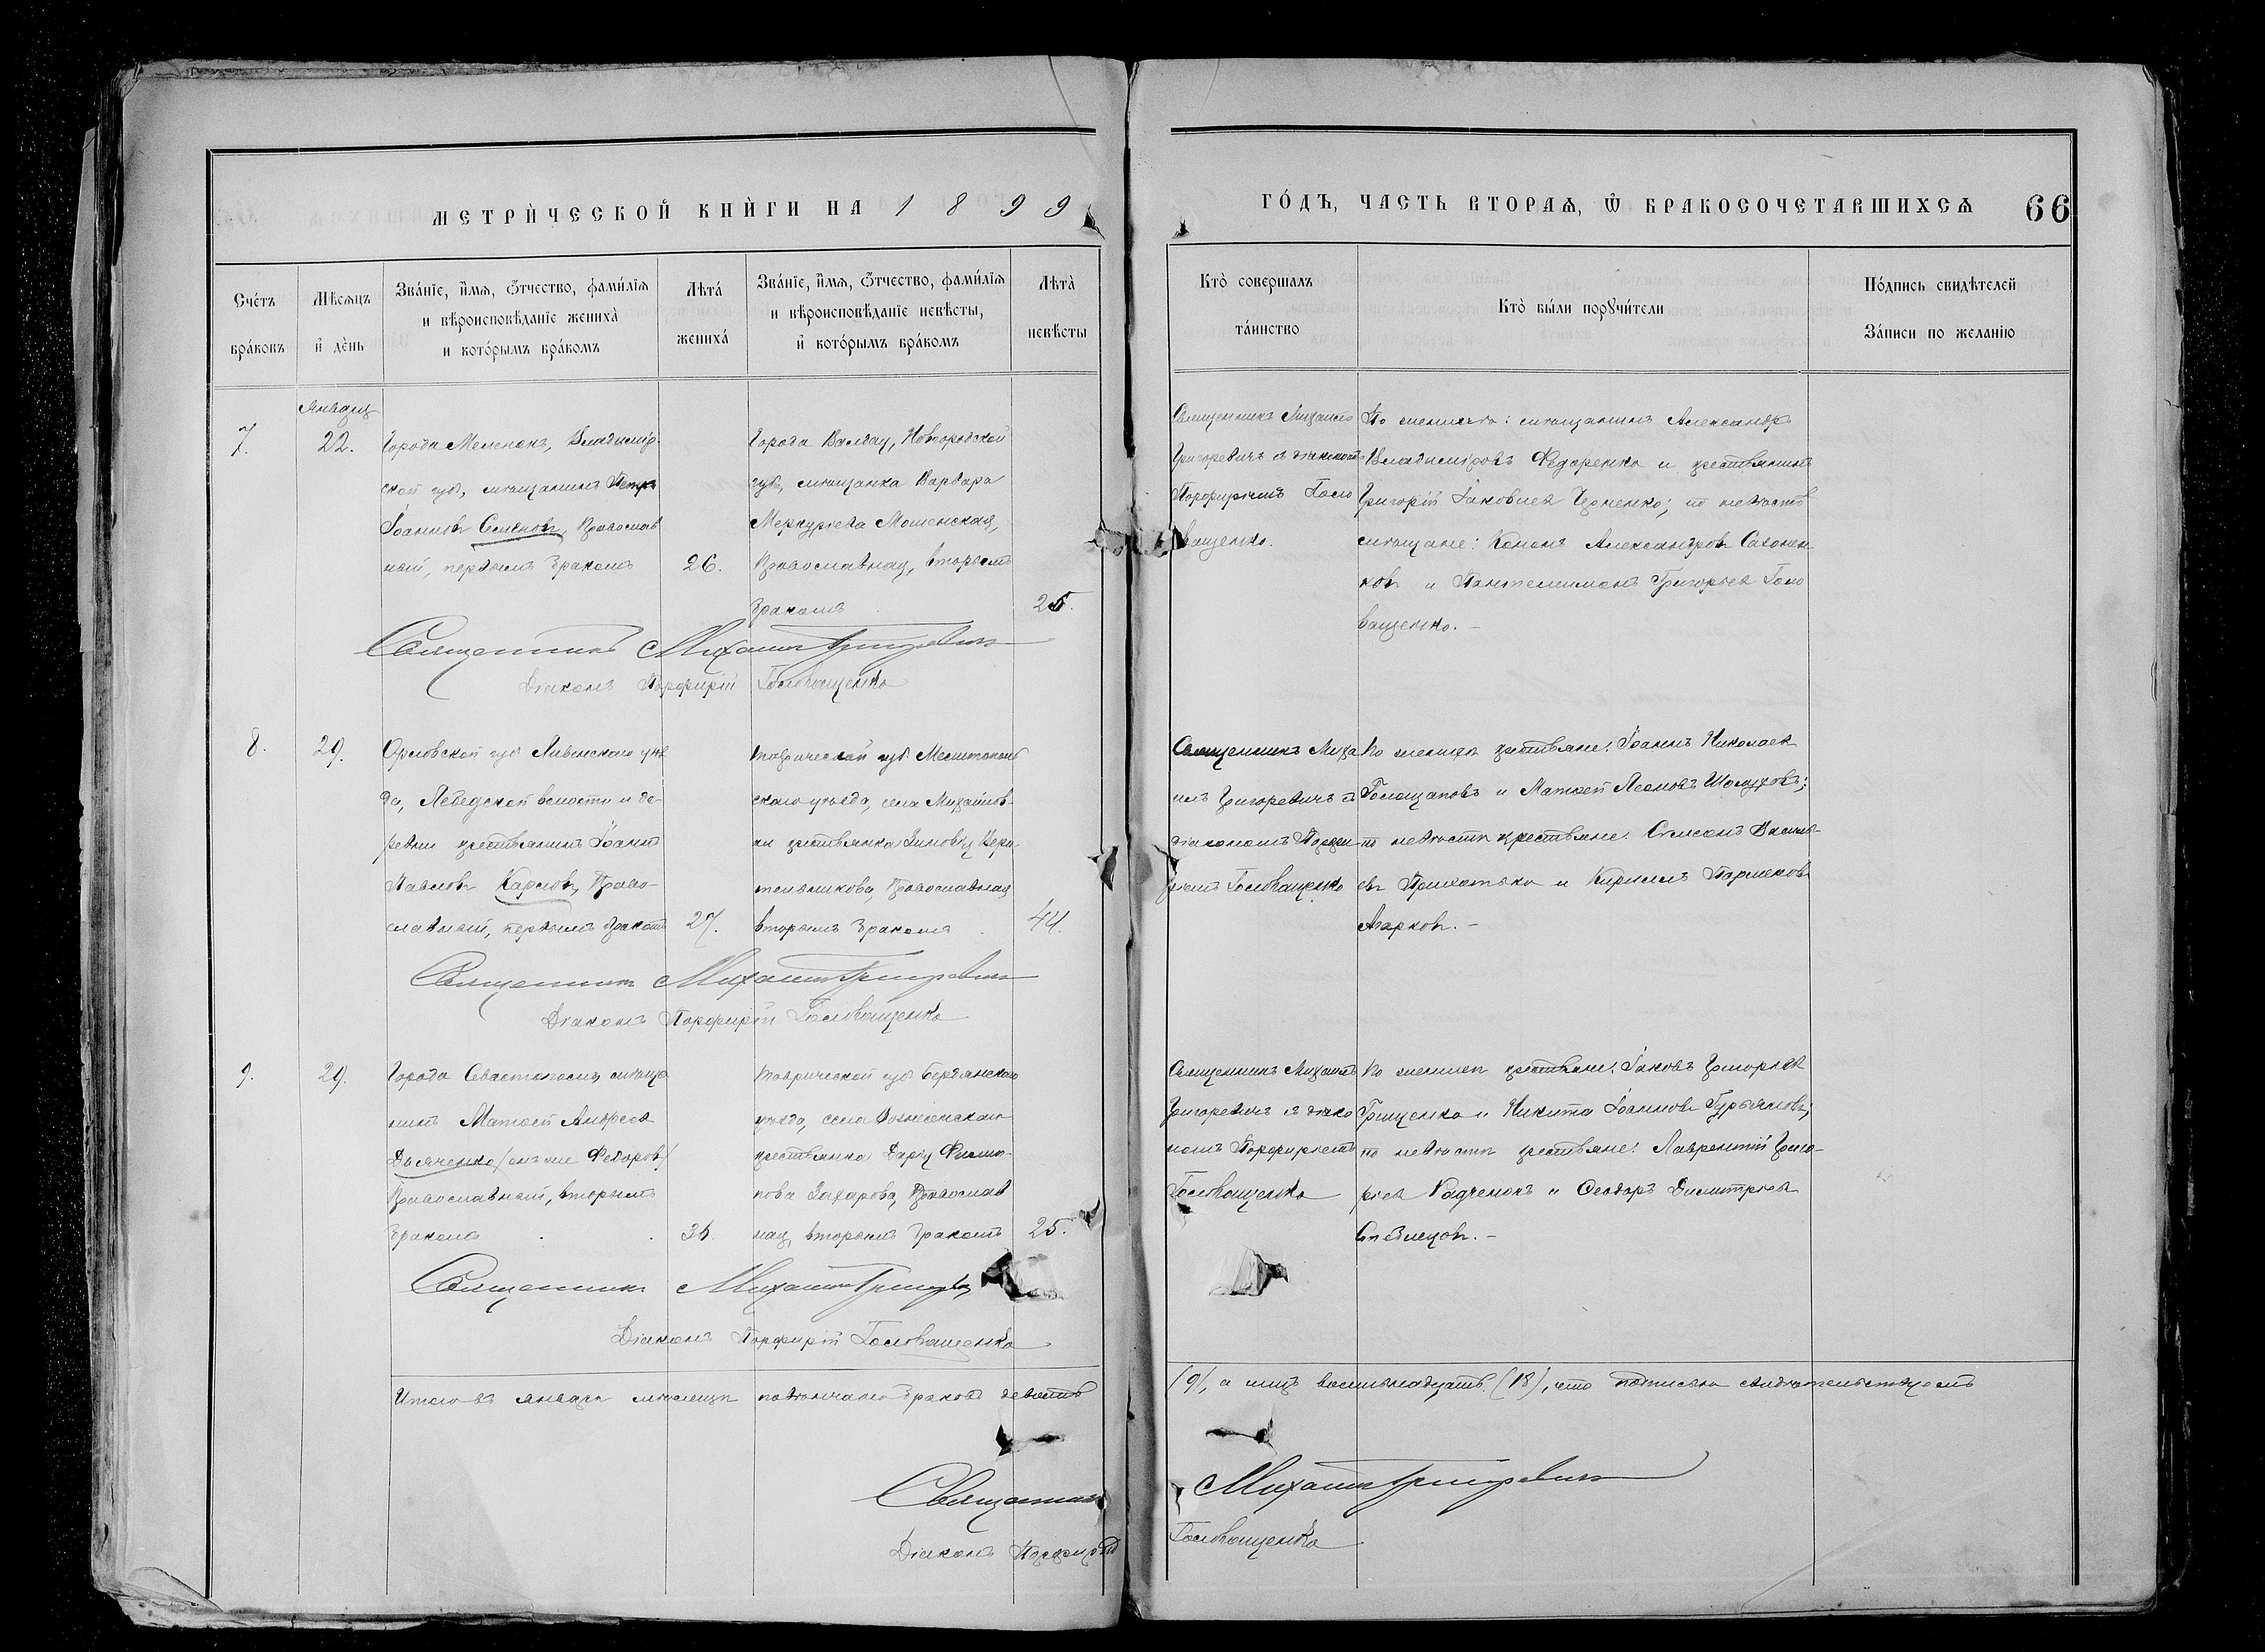 МЕТРИ́ЧЕСКОЙ КНИ́ГИ НА 1899
ГО́ДЪ, ЧАСТЬ ВТОРАѦ, Ѿ БРАКОСОЧЕТАВШИХСѦ 66
Сче́тъ бра́ковъ
Мѣсяцъ и҆ де́нь
Зва́нїе, и҆́мя, ѻ҆́тчество, фами́лїя
и вѣроисповѣ́данїе жениха̀
и кото́рымъ бра́комъ
Лѣта́
жениха́
Зва́нїе, и҆́мя, ѻ҆́тчество, фами́лїя
и вѣроисповѣ́данїе невѣ́сты,
и҆ кото́рымъ бра́комъ
Лѣта̀
невѣ́сты
Кто̀ совершалъ
та́инство
Кто̀ бы́ли порꙋчи́тели
По́дпись свидѣ́телей
За́писи по жела́нїю
Января
7.
22.
Города Меленокъ, Владимір-
ской губ, мѣщанинъ Петръ
Іоанновъ Семеновъ, Православ
ный, первымъ бракомъ
26.
Города Валдая, Новгородской
губ, мѣщанка Варвара
Меркурьева Мошенская,
Православная, вторымъ
бракомъ
25.
Священникъ Михаилъ
Григоревичъ съ діакономъ
Порфиріемъ Голо
ващенко.
По женихѣ: мѣщанинъ Александръ
Владиміровъ Федоренко и крестьянинъ
Григорій Іаковлев Цоненко; по невѣстѣ
мѣщане: Кононъ Александровъ Сазонен
ковъ и Пантелимонъ Григорьев Голо
ващенко. –
Священникъ Михаилъ Григоревичъ
Діаконъ Порфирій Головащенко
8.
29.
Орловской губ Ливенскаго уѣз
да, Лебедской волости и де-
ревни крестьянинъ Іоаннъ
Павловъ Карловъ, Право-
славный, первымъ бракомъ
27.
Таврической губ. Мелитополь
скаго уѣзда, села Михайлов-
ки крестьянка Зиновія Вере
тельникова, Православная
вторымъ бракомъ
44.
Священникъ Миха
илъ Григоревичъ съ
діакономъ Порфи
ріемъ Головащенко
По женихѣ крестьяне: Іоаннъ Николаев
Голощаповъ и Матвей Леоновъ Шолуховъ;
по невѣстѣ крестьяне: Симеонъ Василь-
евъ Прихотько и Кириллъ Парменовъ
Марковъ. –
Священникъ Михаилъ Григоревичъ
Діаконъ Порфирій Головащенко
9.
29.
Города Севастополя мѣща
нинъ Матвей Андреев
Дьяченко /онъ же Федоров/
Православный, вторымъ
бракомъ
36.
Таврической губ Бердянскаго
уѣзда, села Вознесенскаго
крестьянка Дарья Филип-
пова Захарова, Православ
ная, вторымъ бракомъ
25.
Священникъ Михаилъ
Григоревичъ съ діако
номъ Порфиріемъ
Головащенко
По женихѣ крестьяне: Іаковъ Григорьев
Грищенко и Никита Іоанновъ Гурьяновъ;
по невѣстѣ крестьяне: Лаврентій Григо-
рьев Радченокъ и Ѳеодоръ Димитріев
Священникъ Михаилъ Григоревичъ
Діаконъ Порфирій Головащенко
Итого въ январѣ мѣсяцѣ повѣнчано браковъ девять
(9), а лицъ восьмнадцать (18), что подписью свидѣтельствуемъ
Священникъ Михаилъ Григоревичъ
Діаконъ Порфирій Головащенко